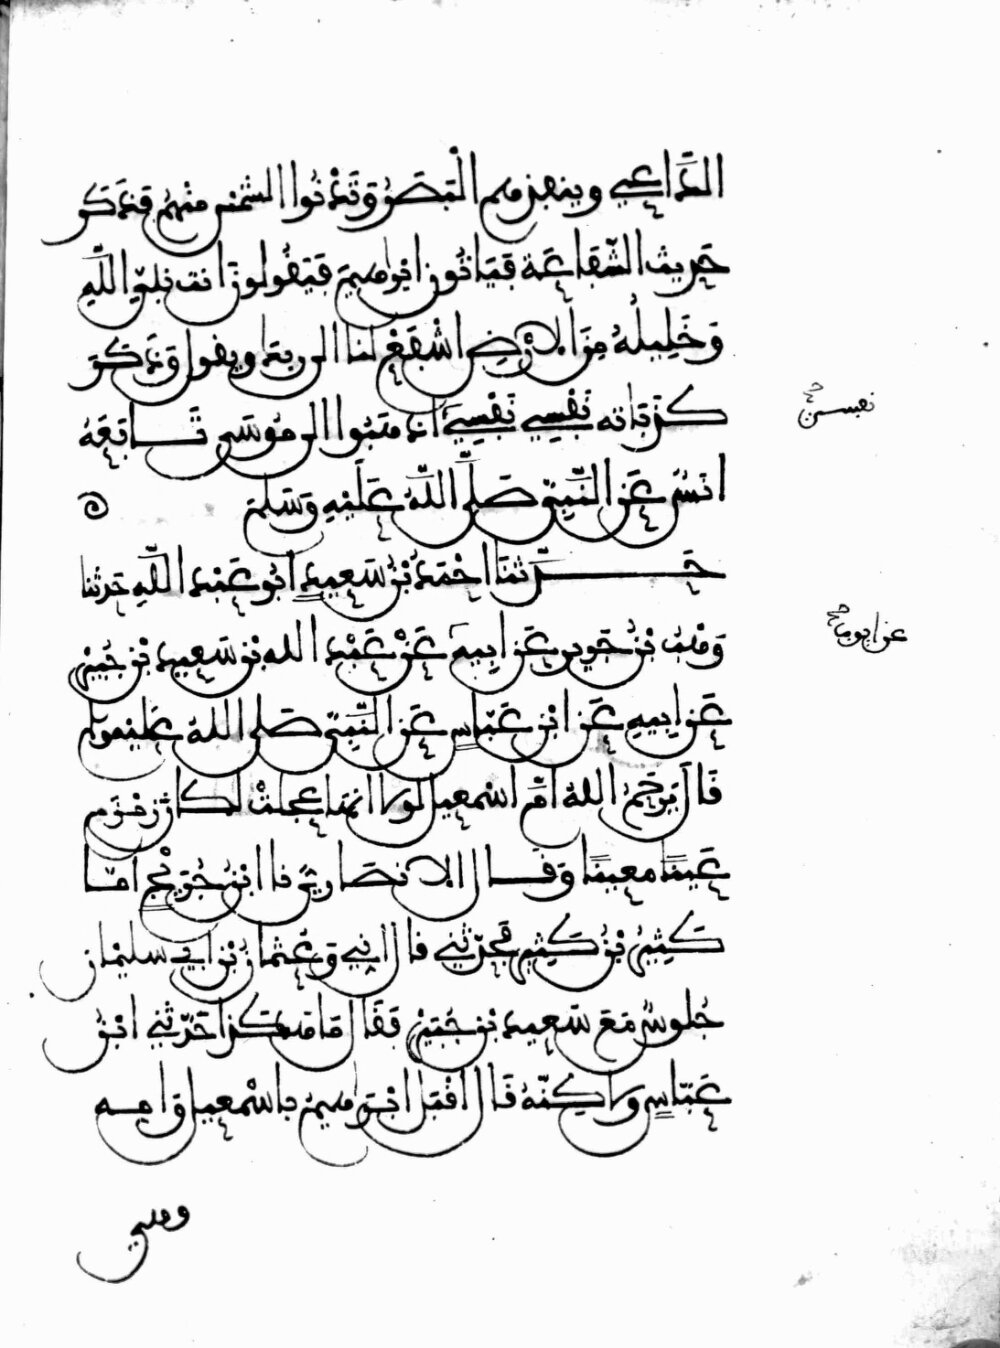 الدَّاعِي وينفزهم الْبَصَرُ وَتَدْنُوا الشمس منْهُم فَذَكَرَ
حَدِيث الشَّفَاعَة فَيَاتُون ابْراهيمَ فَيَقُولُونَ انت نبيّ اللَّهِ
وَخَلِيلُهُ مِنَ الارْضِ اشْفَعْ لنا الى ربك ويقول وَذَكَرَ
كذباته نَفْسِي نَفْسِي اذهبُوا الى مُوسَى تَابَعَهُ
انسٌ عَن النَّبِيّ صَلَّى اللَّهُ عَلَيْهِ وَسَلَّمَ
حَدَّثنَا احْمَدُ بْنُ سَعِيدٍ ابُو عَبْدِ اللَّهِ حَدثنا
وَهْبُ بْنُ جَرِير عَن ابِيه عَنْ عَبْدِ الله بْن سَعِيدِ بْن جُبَيْرٍ
عَن ابِيهِ عَن ابْن عَبَّاسٍ عَن النَّبِيّ صَلى اللهُ عَلَيْه
قَالَ يَرْحَمُ اللهُ امَّ اسْمعِيل لولا انها عجلَتْ لكانَ زمْزَم
عَيْنًا مَعِينًا وَقَال الانصَارِيُّ نا ابْنُ جُرَيْجٍ امّا
كَثِيرُ بْنُ كَثِيرٍ فحَدّثَنِي قال اني وَعُثمان بْن ابي سليْمان
جُلوسٌ مَعَ سَعِيدِ بْن جُبَيْرٍ فَقَال مَا هكذا حَدَّثنِي ابْنُ
عَبَّاسٍ ولاكِنَّهُ قَال اقْبَلَ ابْرَاهيمُ باسْمعِيل وَامه
وهي
نفسي
عن ايوب